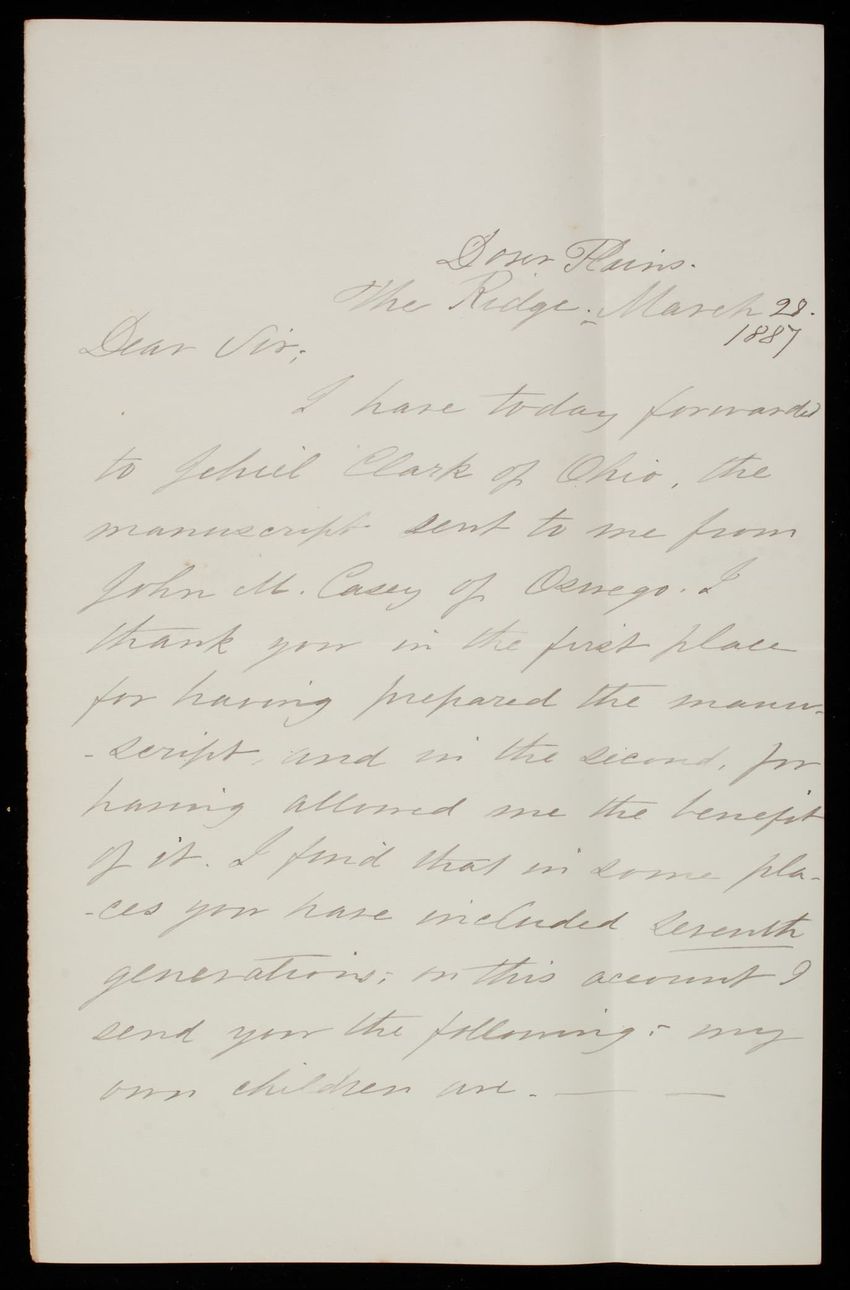 Dover Plains.
The Ridge:- March 28.
1887
Dear Sir;
I have today forwarded
to Jehiel Clark of Ohio, the
manuscript sent to me from
John M. Casey of Oswego. I
thank you in the first place
for having prepared the manu-
-script, and in the second, for
having allowed me the benefit
of it. I find that in some pla-
-ces you have included seventh
generations; on this account I
send you the following:- my
own children are. — —